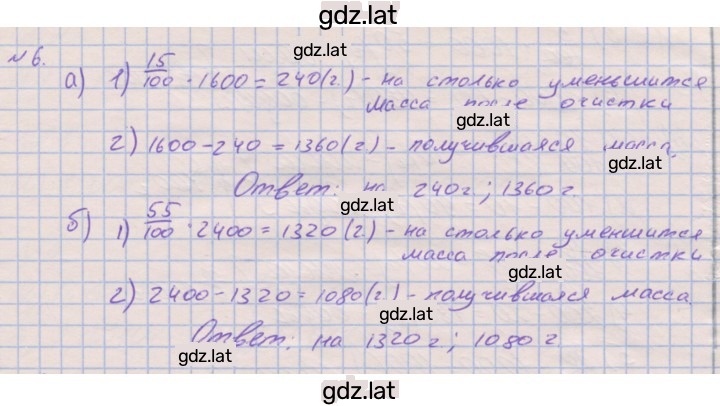 gdz.lat
№6.
gdz.lat
а) 1) 15/100 · 1600 = 240 (г.) - на столько уменьшится
масса после очистки
gdz.lat
2) 1600 - 240 = 1360 (г) - получившаяся масса.
gdz.lat
Ответ: на 240 г ; 1360 г.
gdz.lat
б) 1) 55/100 · 2400 = 1320 (г.) - на столько уменшится
масса после очистки
gdz.lat
2) 2400 - 1320 = 1080 (г.) - получившаяся масса.
Ответ: на 1320 г ; 1080 г
gdz.lat
gdz.lat